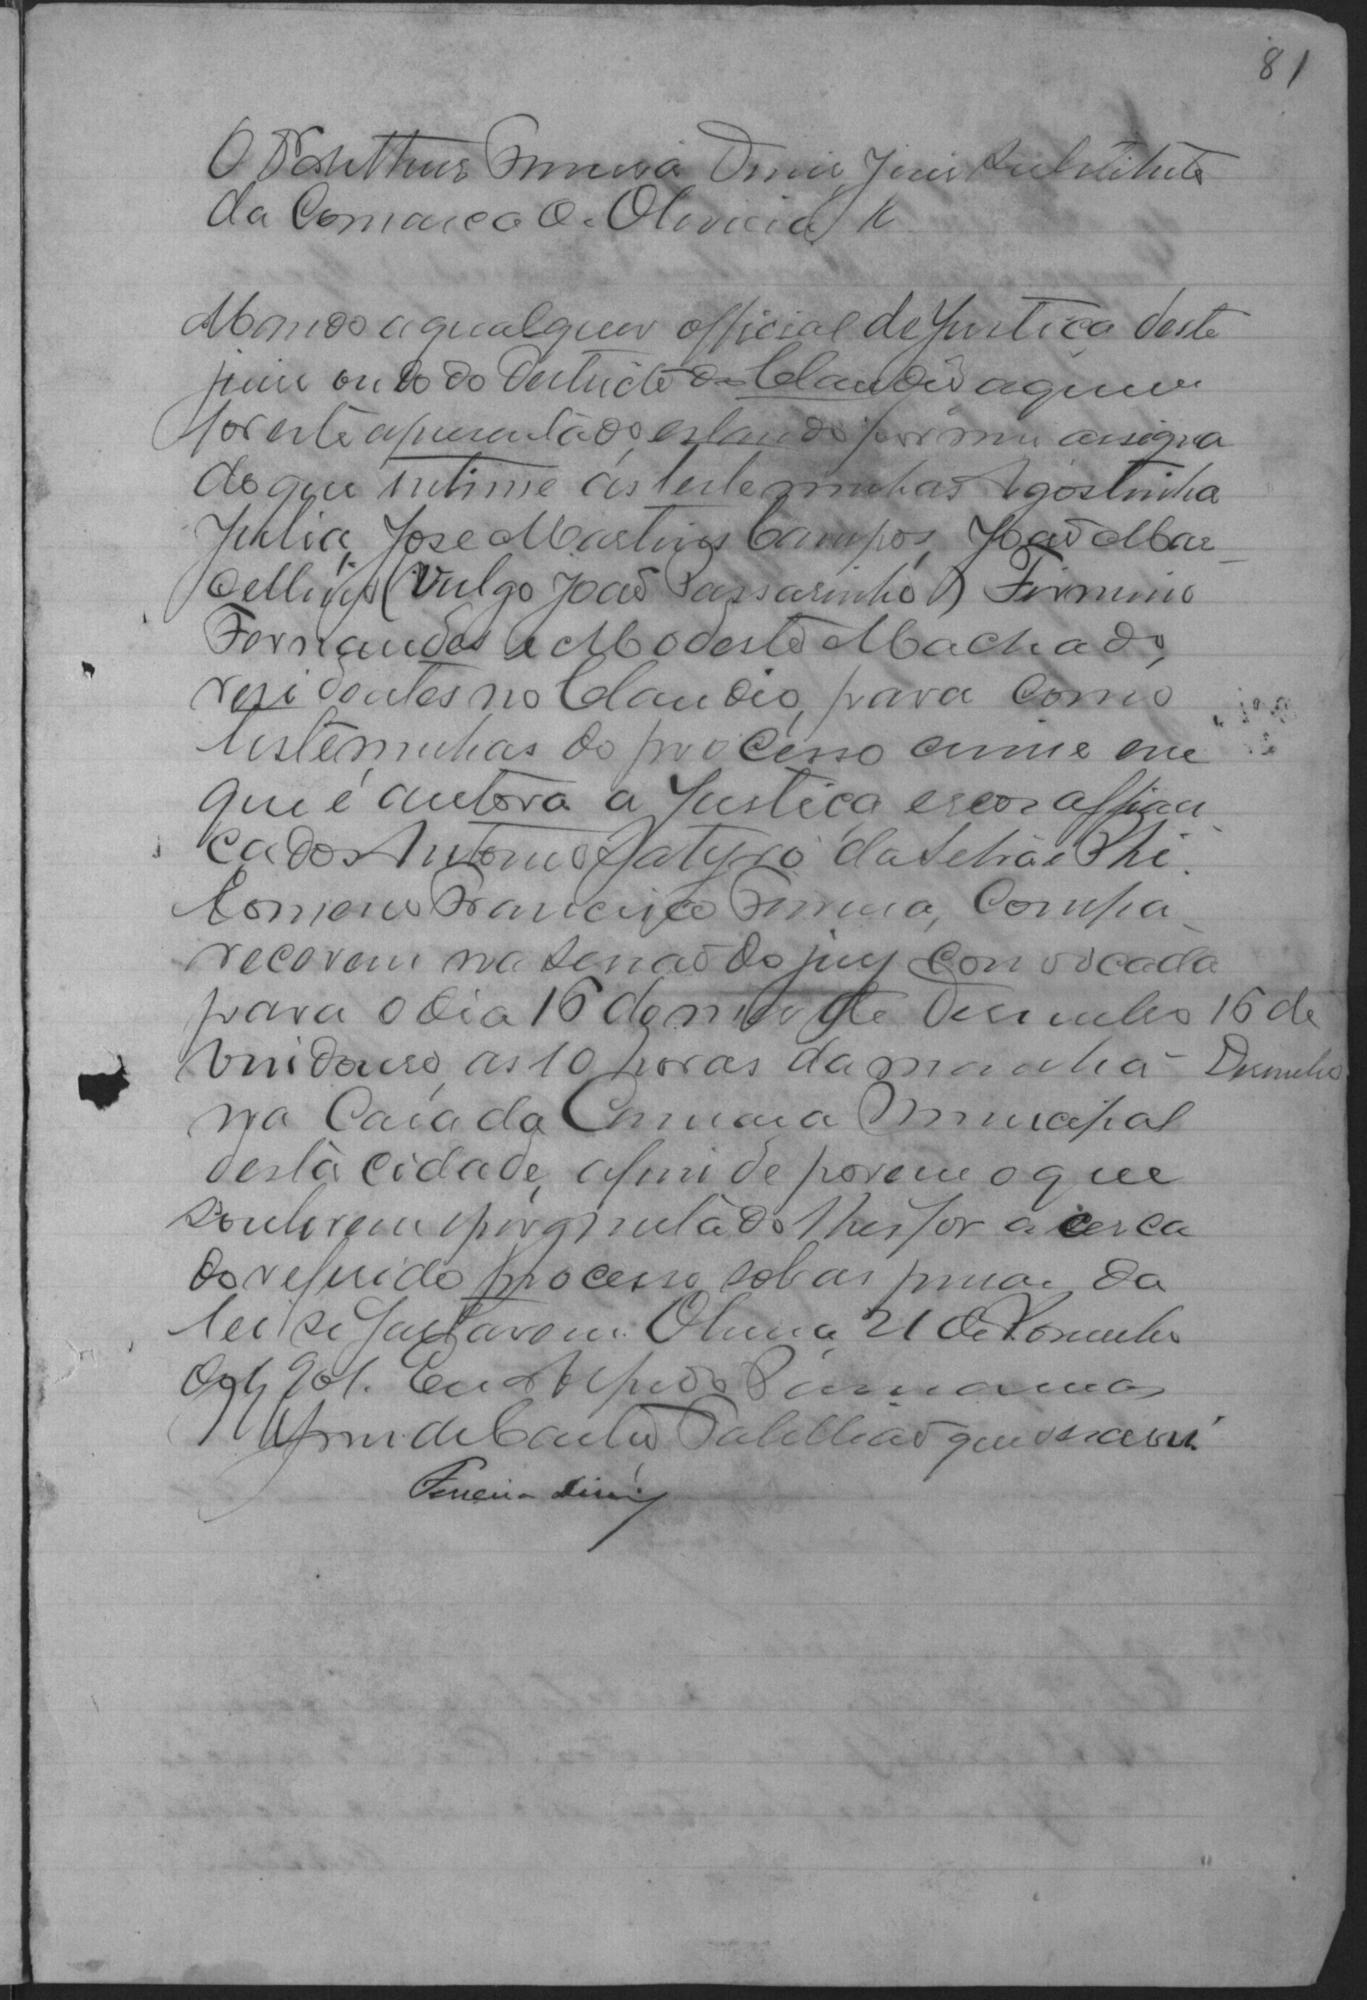 81
O Dr Arthur Ferreira Diniz, Juiz Substituto
da Comarca de Oliveira, &
Mando a qualquer official de Justiça deste
juizo ou do do destricto do Claudio a quem
for este apresentado, estando por mim assigna
do que intime ás testemunhas Agostinha
Julia, José Martins Campos, João Mar-
cellino (vulgo João Passarinho) Firmino
Fernandes e Modesto Machado,
residentes no Claudio, para como
testemunhas do processo crime em
que é autora a Justiça e reos affian
çados Antonio Satyro da e Phi
lomeno Francisco Ferreira, compa
recerem na sessão do jury convocada
para o dia 16 do mez de Desembro 16 de
vindouro, as 10 horas da manhã - Desembro
na Casa da Camara Municipal
desta cidade, afim de porem o que
souberem e perguntado lhes for acerca
do referido processo, sob as penas da
lei se faltarem. Oliveira, 21 de Novembro
de 1901. Eu Alfredo
de Castro Tabellião que o escrevi
Ferreira Diniz